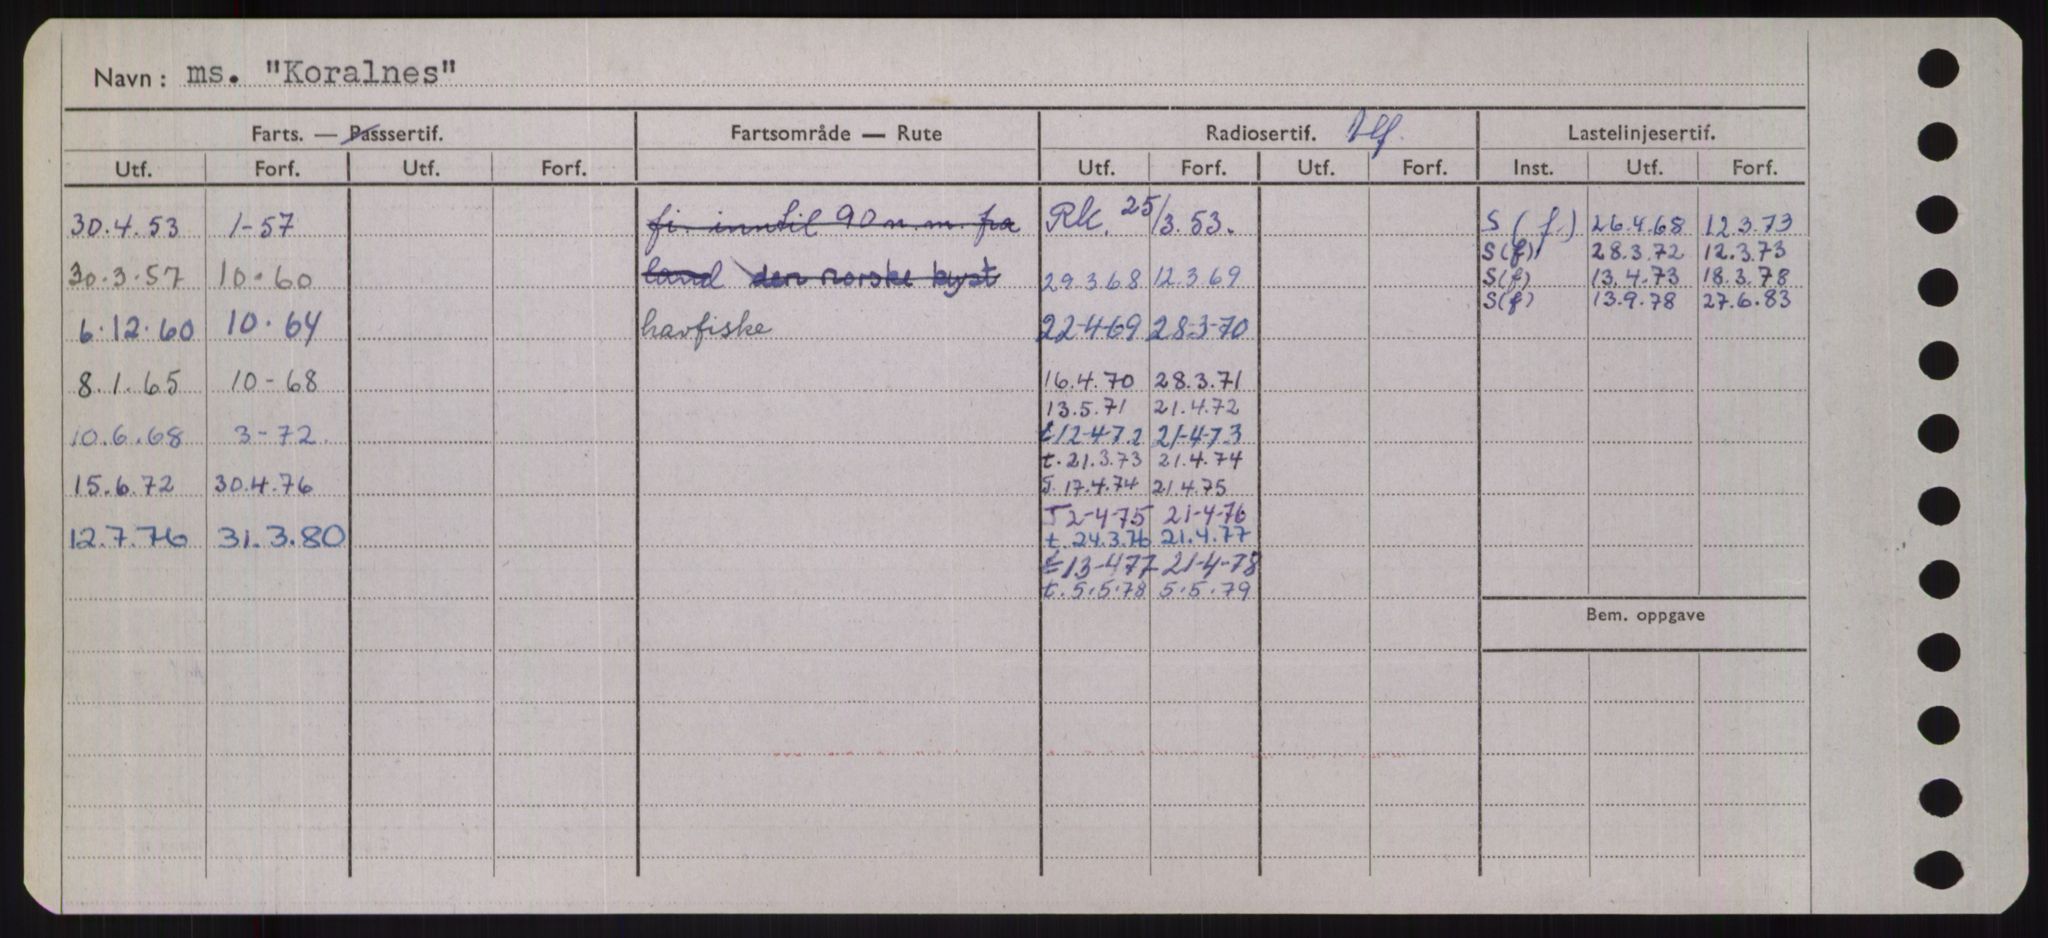 Navn: ms. "Koralnes"
Farts. — Passsertif. Fartsområde — Rute Radiosertif. Tlf. Lastelinjesertif.
Utf. Forf. Utf. Forf. Utf. Forf. Utf. Forf. Inst. Utf. Forf.
30.4.53 1-57 fi. inntil 90 n.m. fra Rk. 25/3.53. S (f.) 26.4.68 12.3.73
S(f) 28.3.72 12.3.73
30.3.57 10.60 land den norske kyst 29.3.68 12.3.69 S(f) 13.4.73 18.3.78
S(f) 13.9.78 27.6.83
6.12.60 10.64 havfiske 22-4-69 28-3-70
8.1.65 10-68 16.4.70 28.3.71
13.5.71 21.4.72
10.6.68 3-72. t 12-4-72 21-4-73
t. 21.3.73 21.4.74
15.6.72 30.4.76 T. 17.4.74 21.4.75
T 2-4-75 21-4-76
12.7.76 31.3.80 t. 24.3.76 21.4.77
t 13-4-77 21-4-78
t. 5.5.78 5.5.79
Bem. oppgave